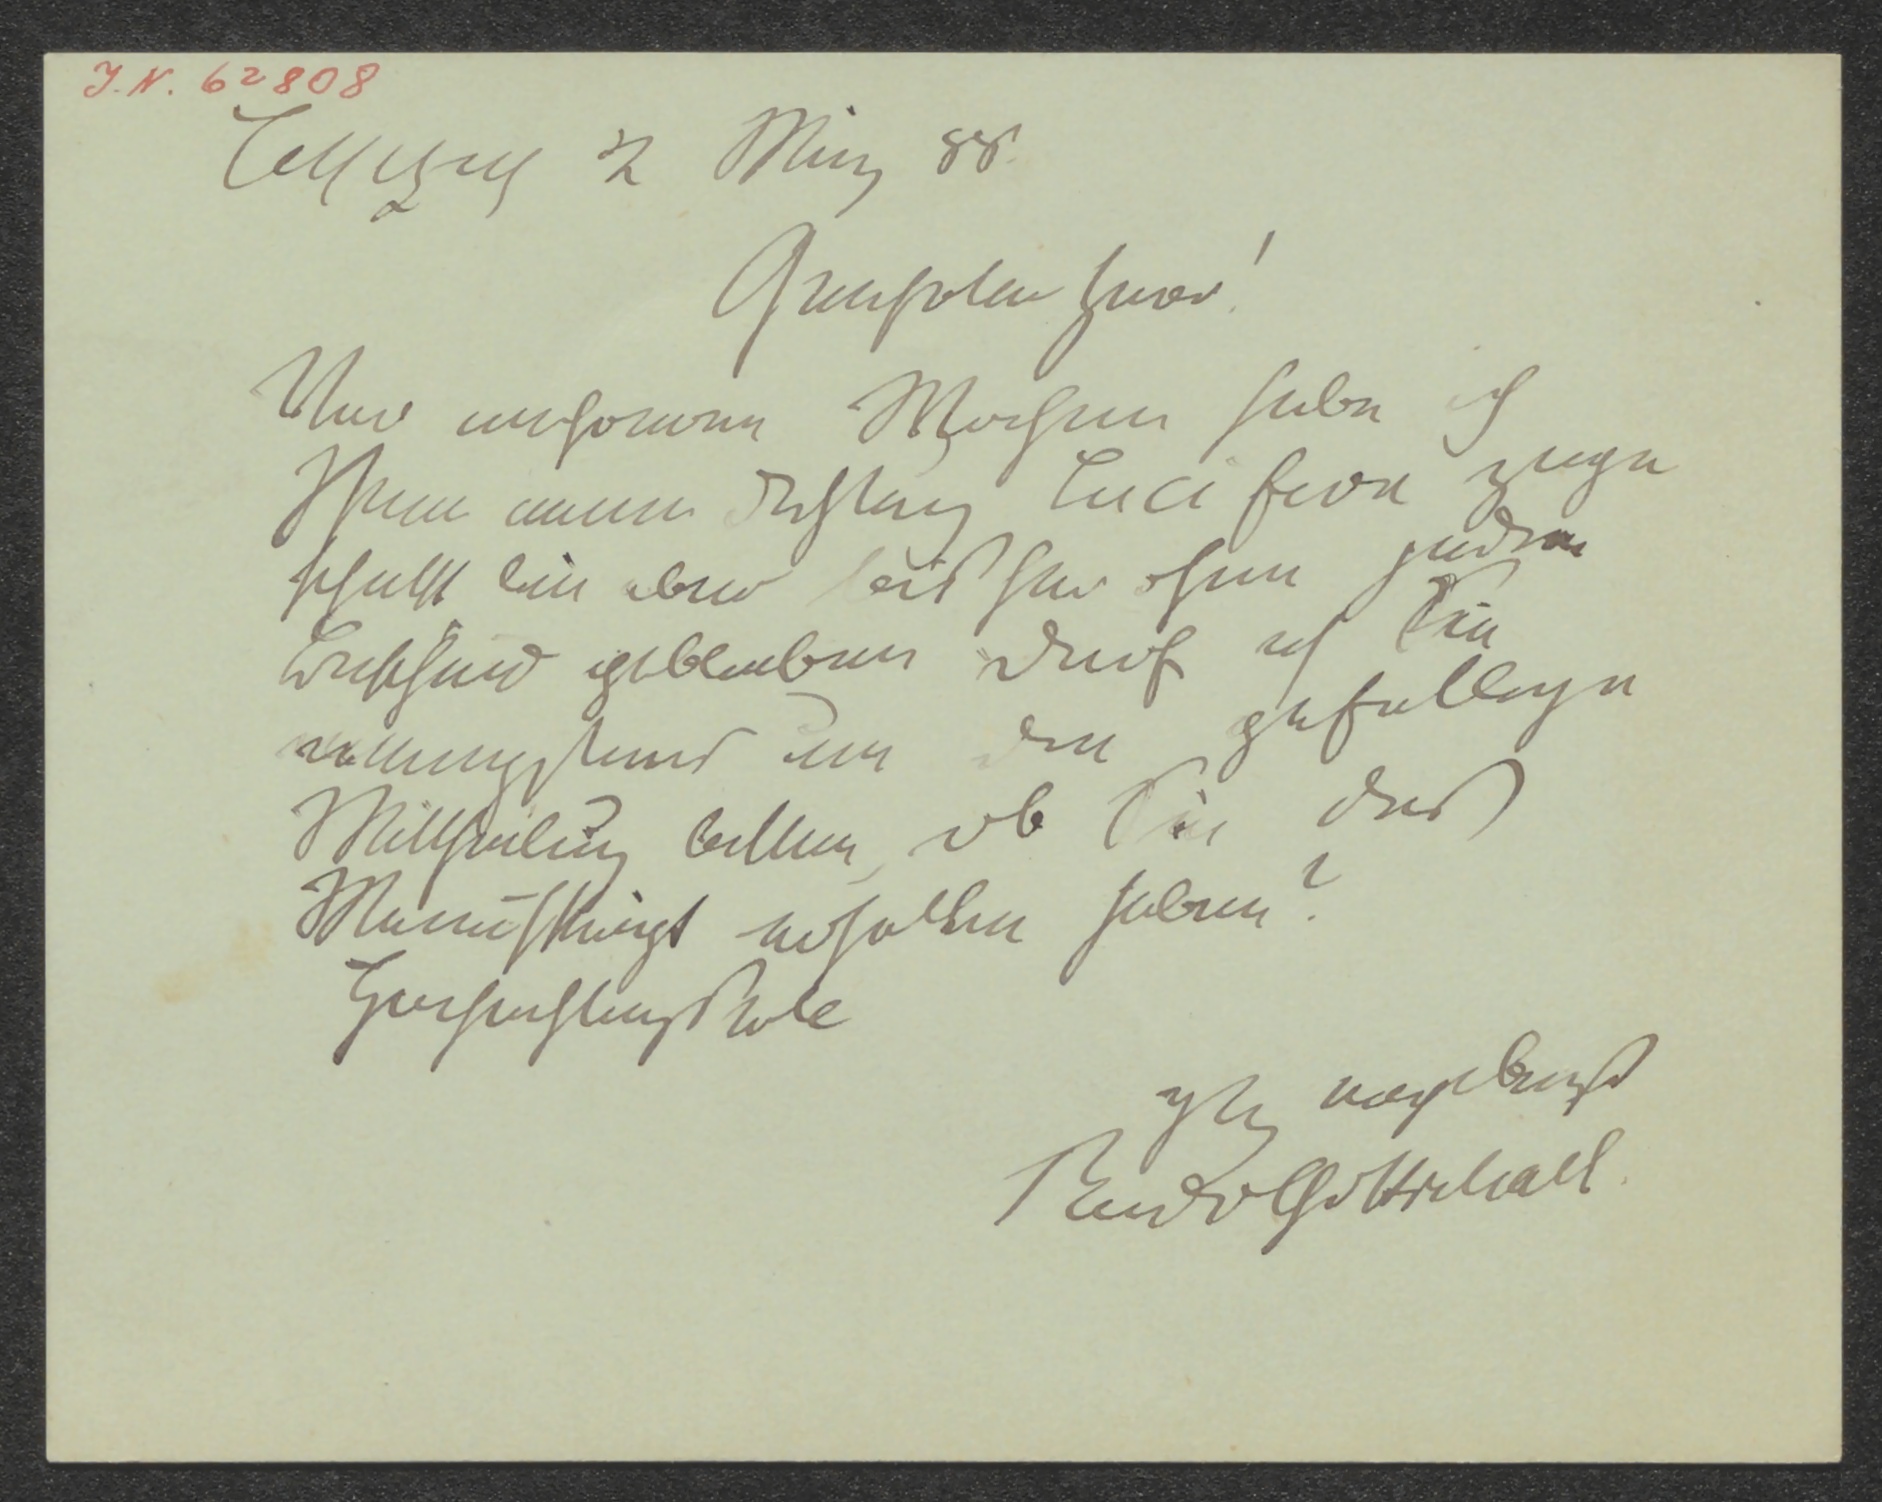 J.N. 62808
Leipzig 2 März 88.
Geehrter Herr!
Vor mehreren Wochen habe ich
Ihnen meine Dichtung Lucifera zuge
schickt bin aber seither ohne jeden
Bescheid geblieben darf ich Sie
um die gefällige
Mittheilung bitten, ob Sie das
Manuskript erhalten haben?
Hochachtungsvoll
ganz ergebenst
Rudolf Gottschall.